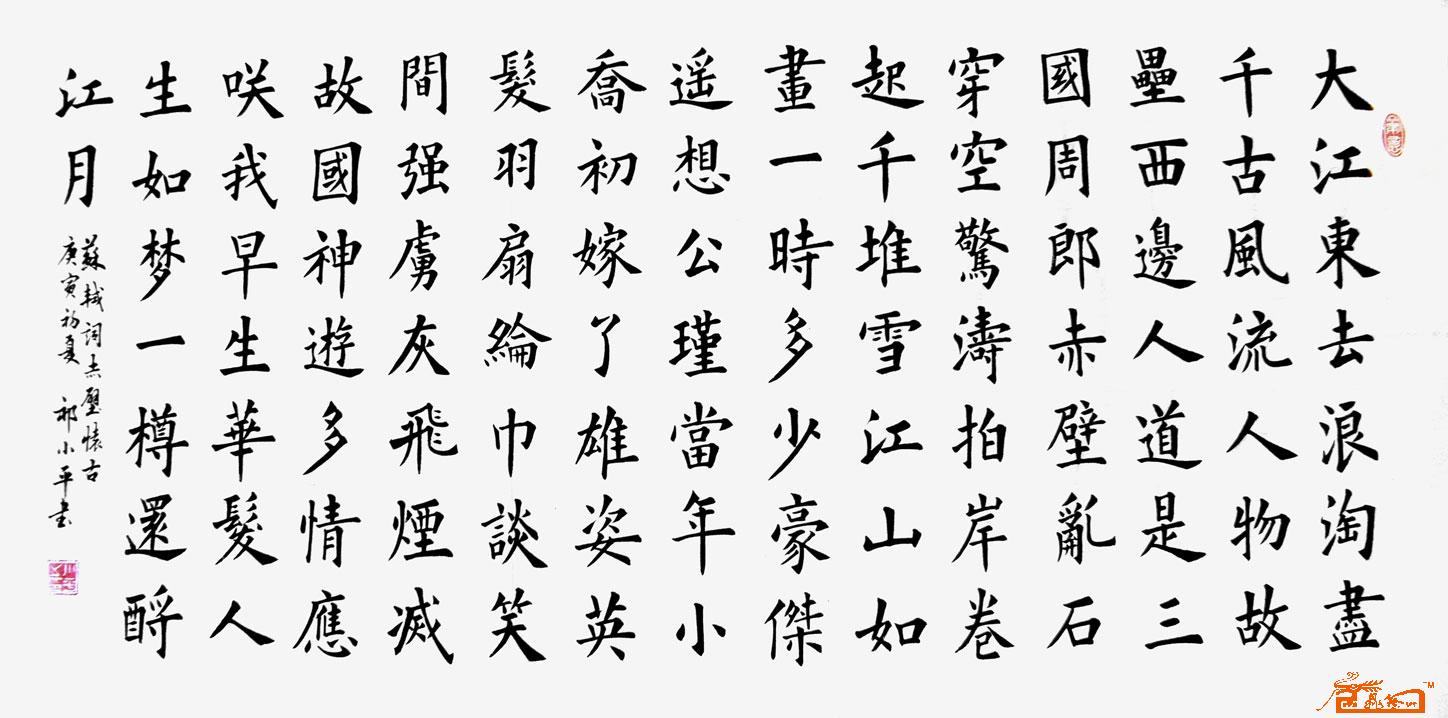 大江東去浪淘盡
千古風流人物故
壘西邊人道是三
國周郎赤壁亂石
穿空驚濤拍岸卷
起千堆雪江山如
畫一時多少豪傑
遥想公瑾當年小
喬初嫁了雄姿英
髮羽扇綸巾談笑
間强虜灰飛煙滅
故國神遊多情應
咲我早生華髮人
生如梦一樽還酹
江月
蘇軾詞赤壁懷古
庚寅初夏 祁小平書